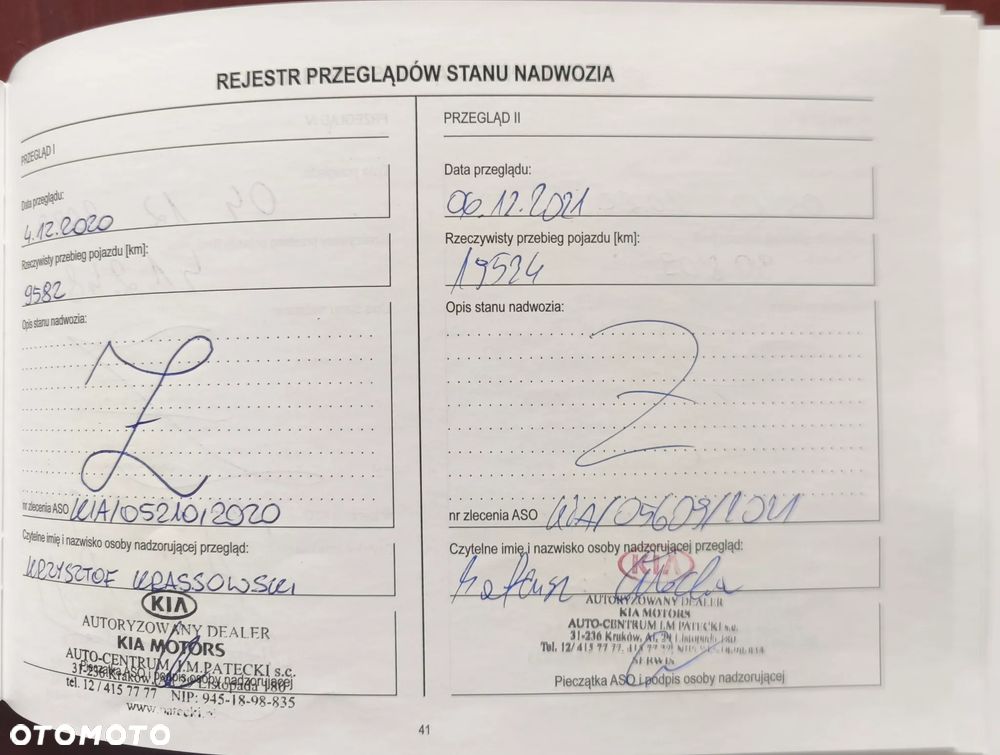 REJESTR PRZEGLĄDÓW STANU NADWOZIA
PRZEGLĄD I
Data przeglądu:
4.12.2020
Rzeczywisty przebieg pojazdu [km]:
9582
Opis stanu nadwozia:
Z
nr zlecenia ASO KIA/05210/2020
Czytelne imię i nazwisko osoby nadzorującej przegląd:
KRZYSZTOF KRASSOWSKI
KIA
AUTORYZOWANY DEALER
KIA MOTORS
AUTO-CENTRUM I.M.PATECKI s.c.
31-236 Kraków, Listopada 180
Pieczątka ASO i podpis osoby nadzorującej
tel. 12 / 415 77 77 NIP: 945-18-98-835
www.patecki.pl
PRZEGLĄD II
Data przeglądu:
06.12.2021
Rzeczywisty przebieg pojazdu [km]:
19524
Opis stanu nadwozia:
Z
nr zlecenia ASO KIA/05609/2021
Czytelne imię i nazwisko osoby nadzorującej przegląd:
Mateusz
KIA
AUTORYZOWANY DEALER
KIA MOTORS
AUTO-CENTRUM I.M PATECKI s.c.
31-236 Kraków, Al. 29 Listopada 180
Tel. 12/ 415 77 77,
SERWIS
Pieczątka ASO i podpis osoby nadzorującej
41
OTOMOTO